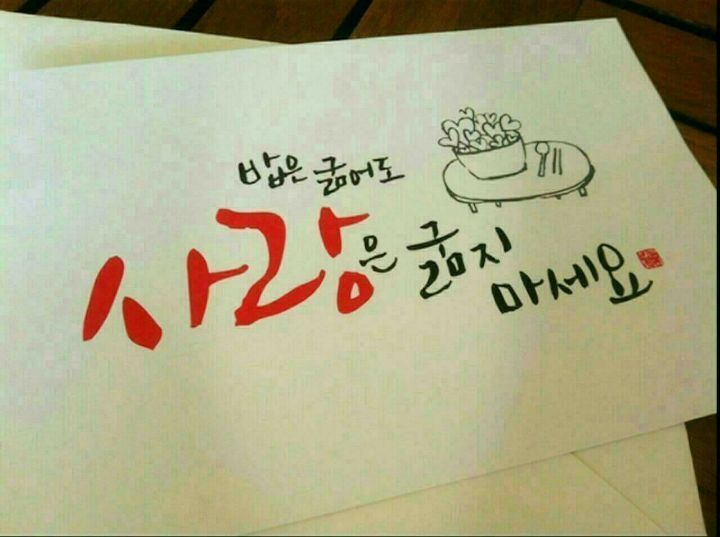 밥은 굶어도
사랑은 굶지
마세요